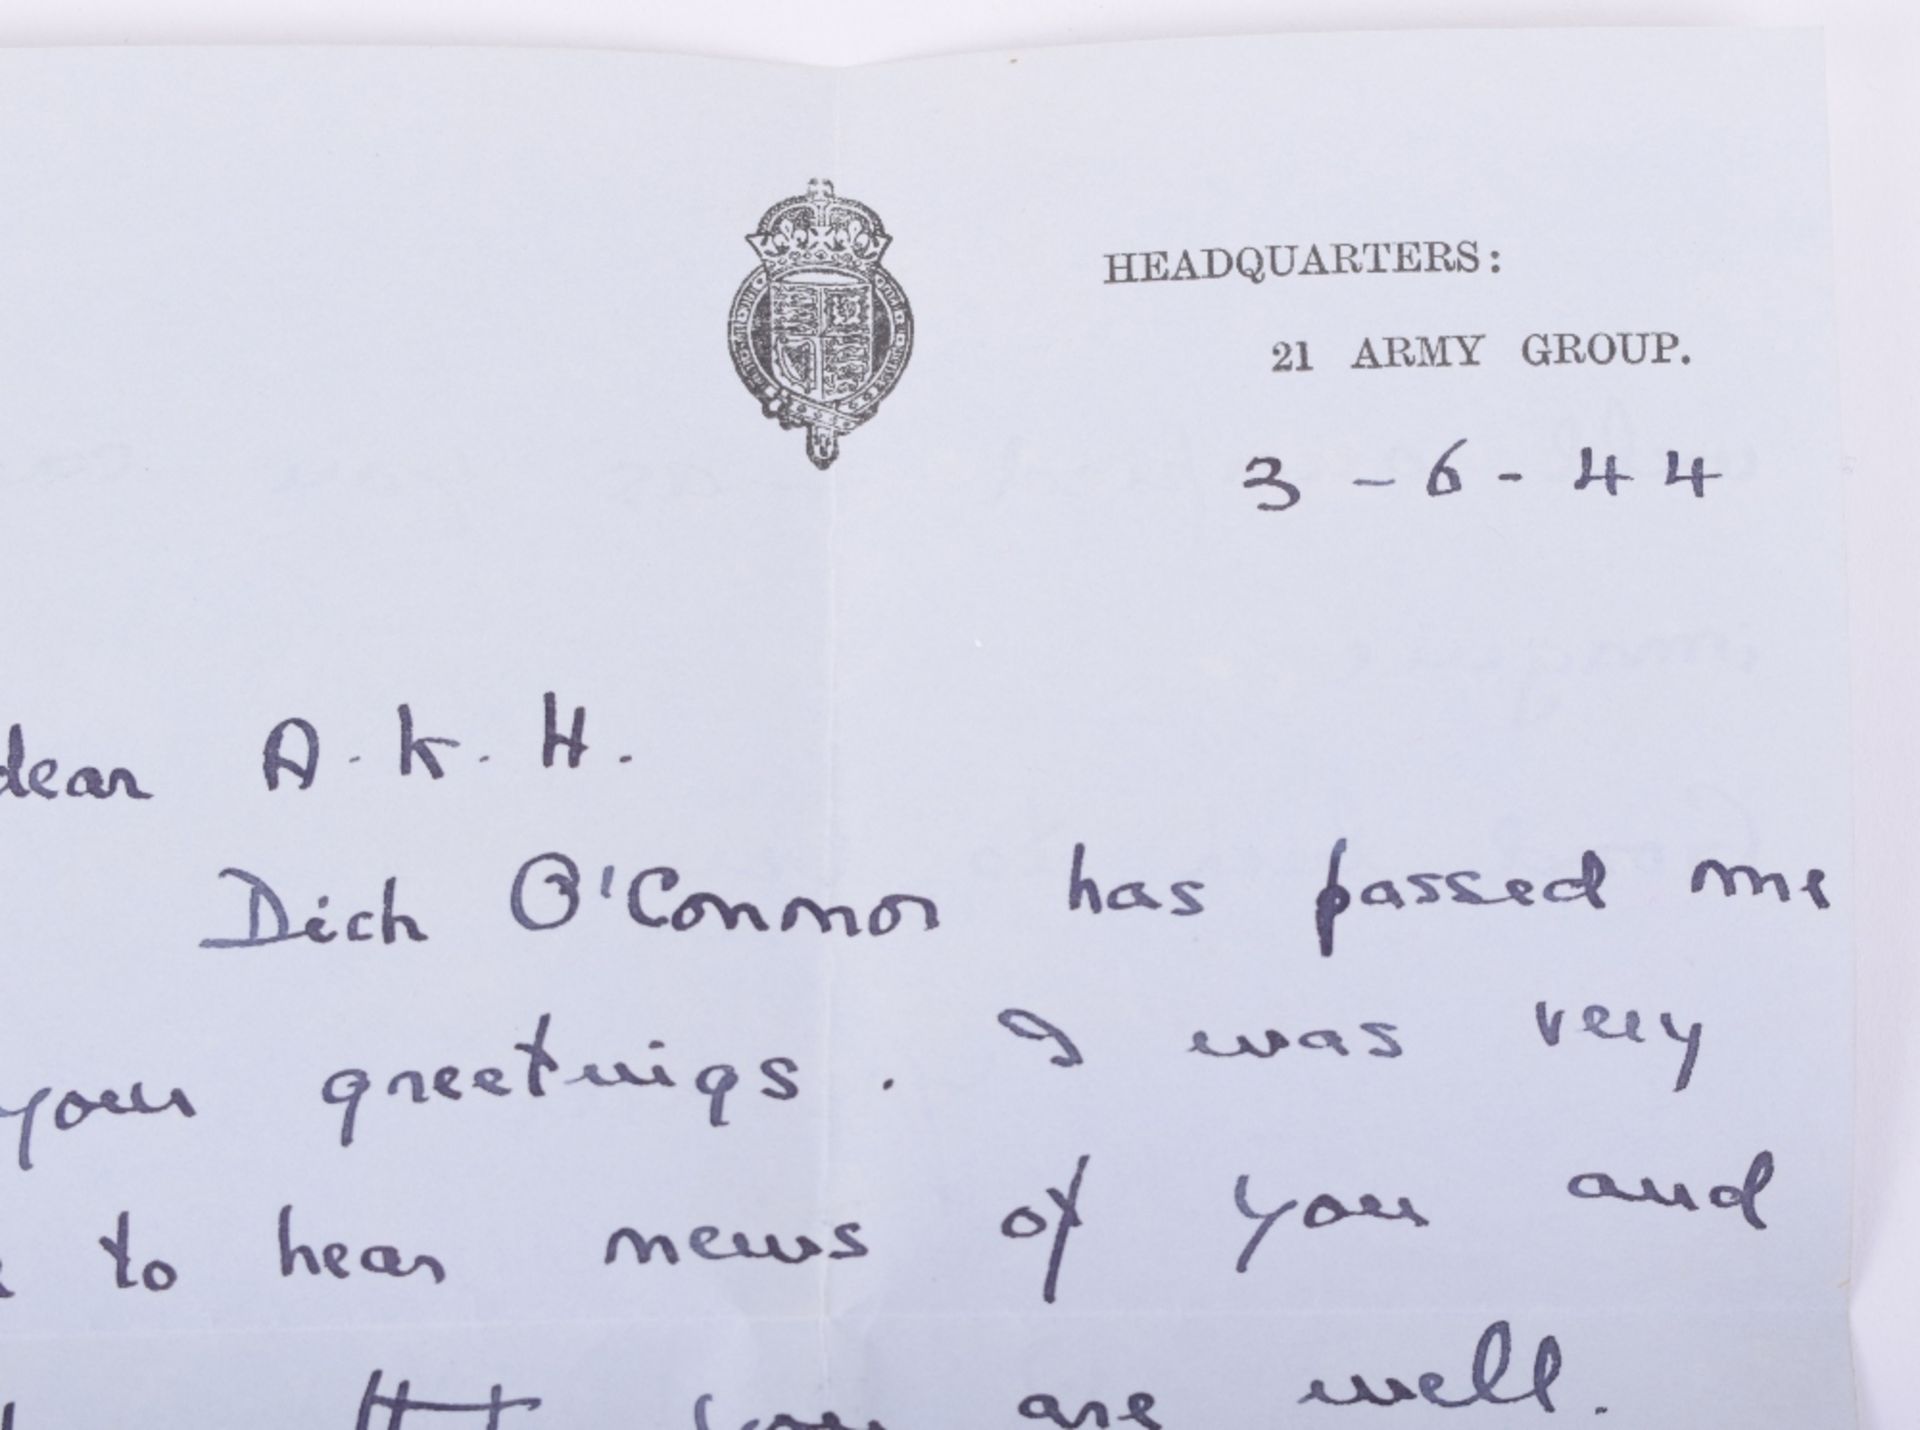 HEADQUARTERS:
21 ARMY GROUP.
3 - 6 - 44
dear A. K. H.
Dick O'Connor has passed me
your greetings. I was very
to hear news of you and
that you are well.